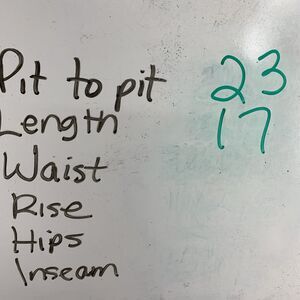 Pit to pit 23
Length 17
Waist
Rise
Hips
Inseam